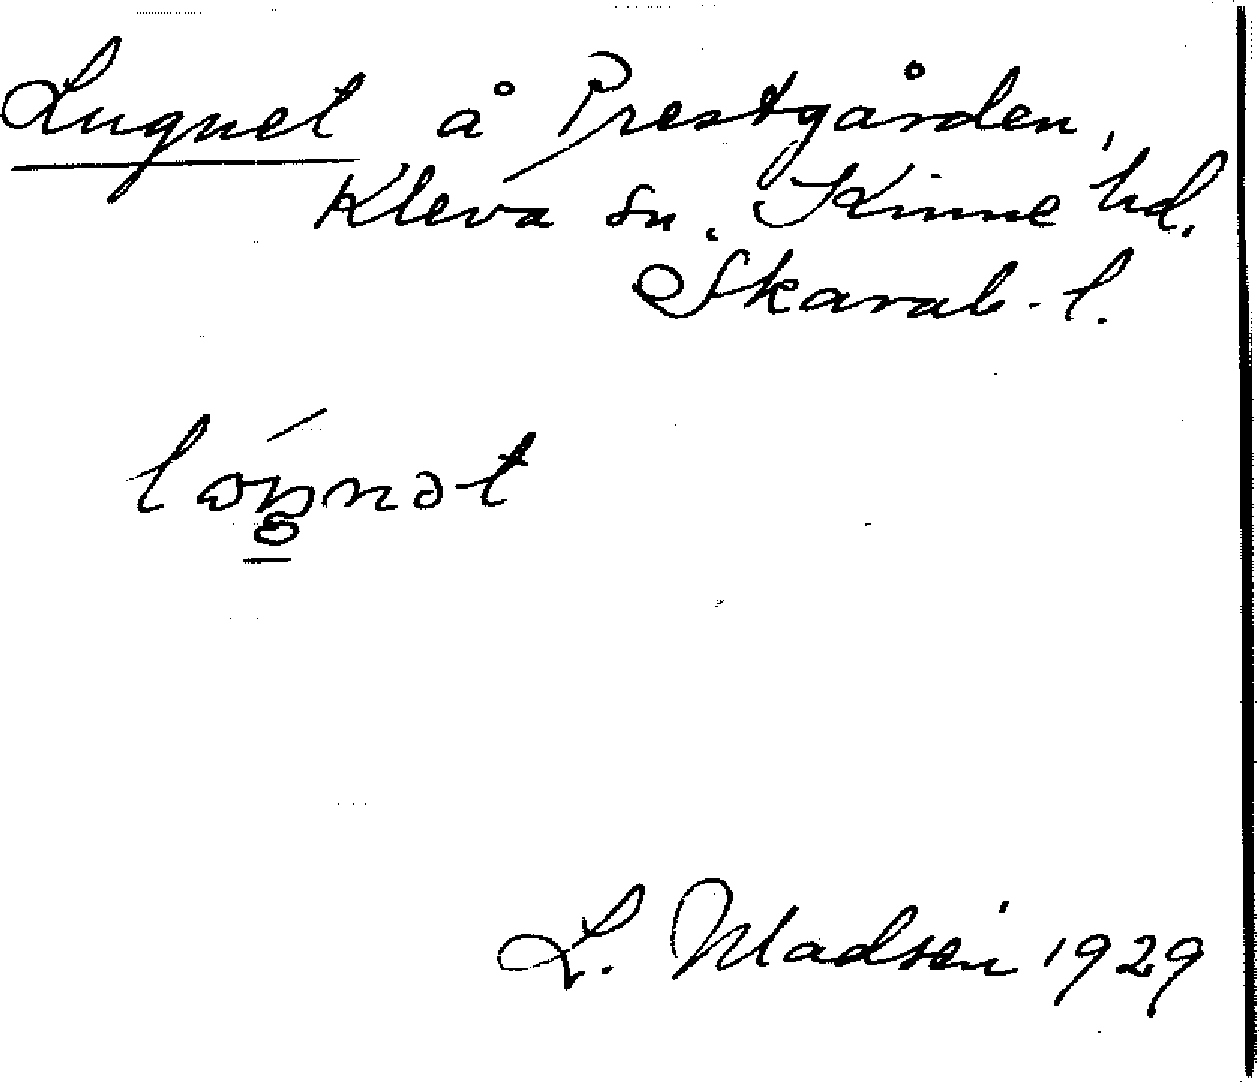 Lugnet å Prestgården,
Kleva sn. Kinne hd.
Skarab. l.
L. Madsén 1929